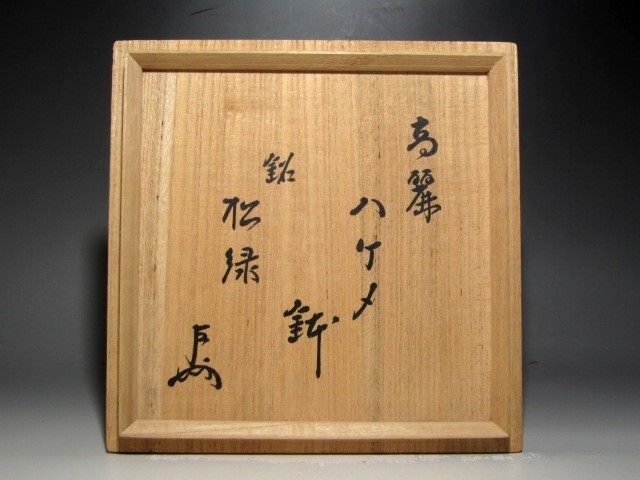 高麗
ハケメ
鉢
銘
松緑